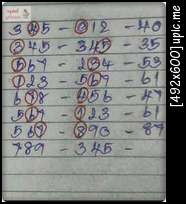 345 - 012 - 40
345 - 345 - 35
567 - 234 - 53
123 - 567 - 61
678 - 456 - 47
567 - 123 - 61
567 - 890 - 87
789 - 345 -
[492x600] upic.me